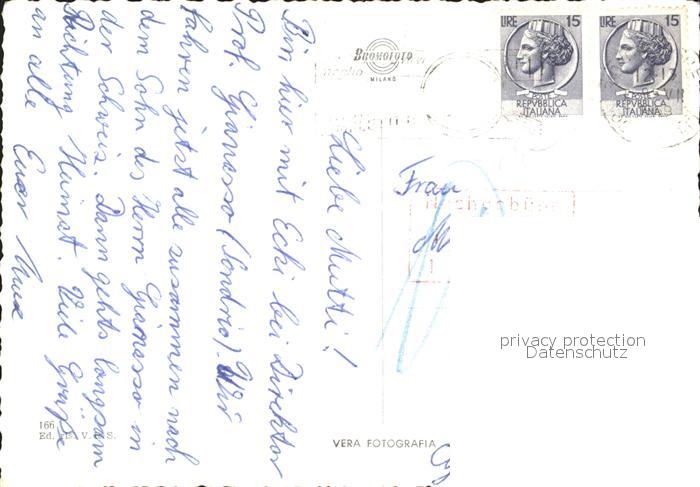 Liebe Mutti!
Bin hier mit Ecki bei Direktor
Prof. Gianasso (Sondrio). Wir
fahren jetzt alle zusammen nach
dem Sohn des Herrn Gianasso in
der Schweiz. Dann gehts langsam
Richtung Heimat. Viele Grüße
an alle Euer
166
Ed. V. S.
BROMOFOTO
MILANO
LIRE 15
POSTE
REPVBBLICA
ITALIANA
LIRE 15
POSTE
REPVBBLICA
ITALIANA
Frau
Nachgebühr
privacy protection
Datenschutz
VERA FOTOGRAFIA